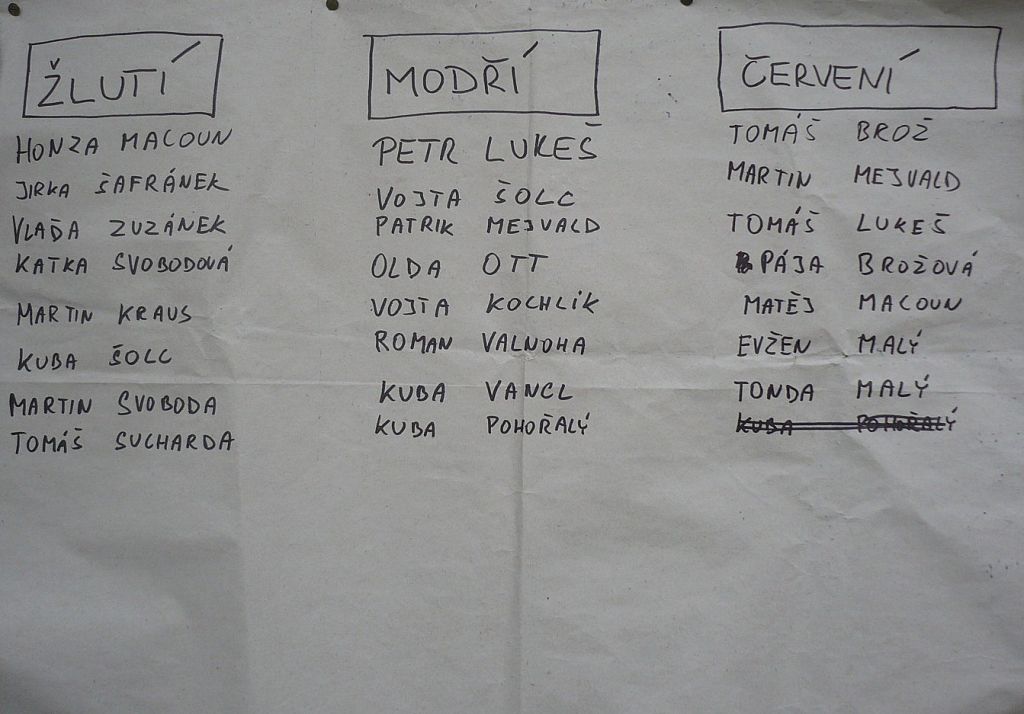 ŽLUTÍ
HONZA MACOUN
JIRKA ŠAFRÁNEK
VLAĎA ZUZÁNEK
KATKA SVOBODOVÁ
MARTIN KRAUS
KUBA ŠOLC
MARTIN SVOBODA
TOMÁŠ SUCHARDA
MODŘÍ
PETR LUKEŠ
VOJTA ŠOLC
PATRIK MEJVALD
OLDA OTT
VOJTA KOCHLIK
ROMAN VALNOHA
KUBA VANCL
KUBA POHOŘALÝ
ČERVENÍ
TOMÁŠ BROŽ
MARTIN MEJVALD
TOMÁŠ LUKEŠ
PÁJA BROŽOVÁ
MATĚJ MACOUN
EVŽEN MALÝ
TONDA MALÝ
KUBA POHOŘALÝ